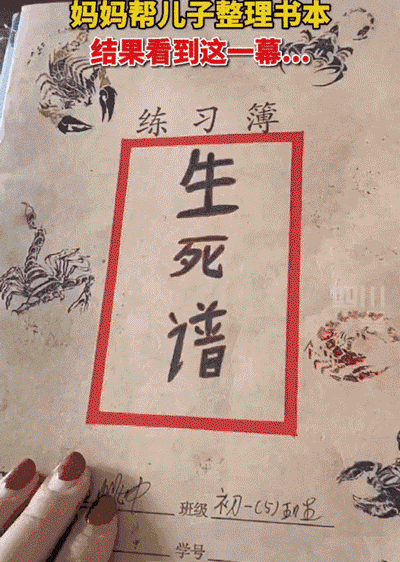 妈妈帮儿子整理书本
结果看到这一幕...
练习簿
生
死
谱
中
班级 初一(5)班
学号